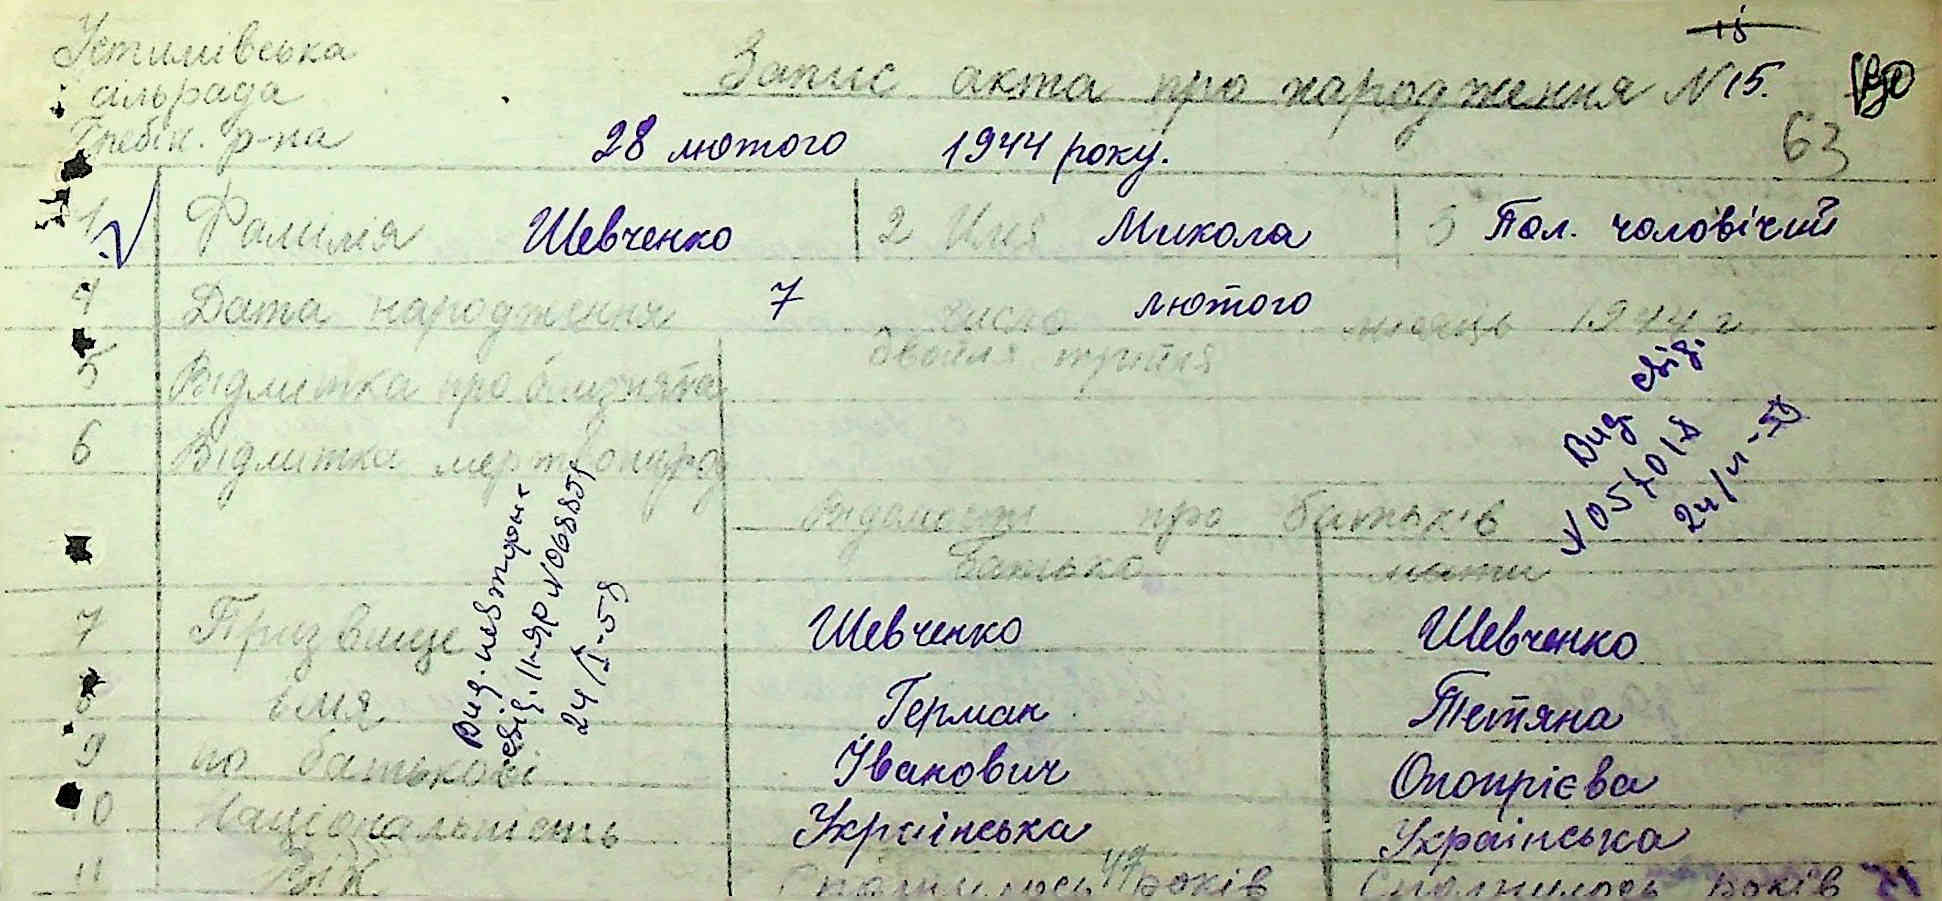 Устимівська
сільрада
Гребін. р-на
15
Запис акта про народження N 15.
63
28 лютого 1944 року.
1 Фамілія Шевченко 2 Имя Микола 3 Пол. чоловічий
4 Дата народження 7 число лютого місяць 1944 г
5 Відмітка про близнята двойня тройня
6 Відмитка мертвонарод
Вид. свід.
N 057018
24/
Вид. повторне
свід. II-ЯР N 0688859
24/I-58
Відомости про батьків
батько мати
7 Призвище Шевченко Шевченко
8 імя Герман Тетяна
9 по батькові Іванович Оноприєва
10 Національність Українська Українська
11 Вік Сполнилось 49 років Сполнилось років